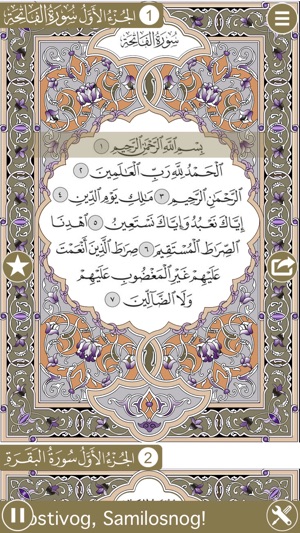 الجزء الأول سورة الفاتحة 1
سورة الفاتحة
بِسْمِ اللَّهِ الرَّحْمَٰنِ الرَّحِيمِ ١
الْحَمْدُ لِلَّهِ رَبِّ الْعَالَمِينَ ٢
الرَّحْمَٰنِ الرَّحِيمِ ٣ مَالِكِ يَوْمِ الدِّينِ ٤
إِيَّاكَ نَعْبُدُ وَإِيَّاكَ نَسْتَعِينُ ٥ اهْدِنَا
الصِّرَاطَ الْمُسْتَقِيمَ ٦ صِرَاطَ الَّذِينَ أَنْعَمْتَ
عَلَيْهِمْ غَيْرِ الْمَغْضُوبِ عَلَيْهِمْ
وَلَا الضَّالِّينَ ٧
الجزء الأول سورة البقرة 2
ostivog, Samilosnog!